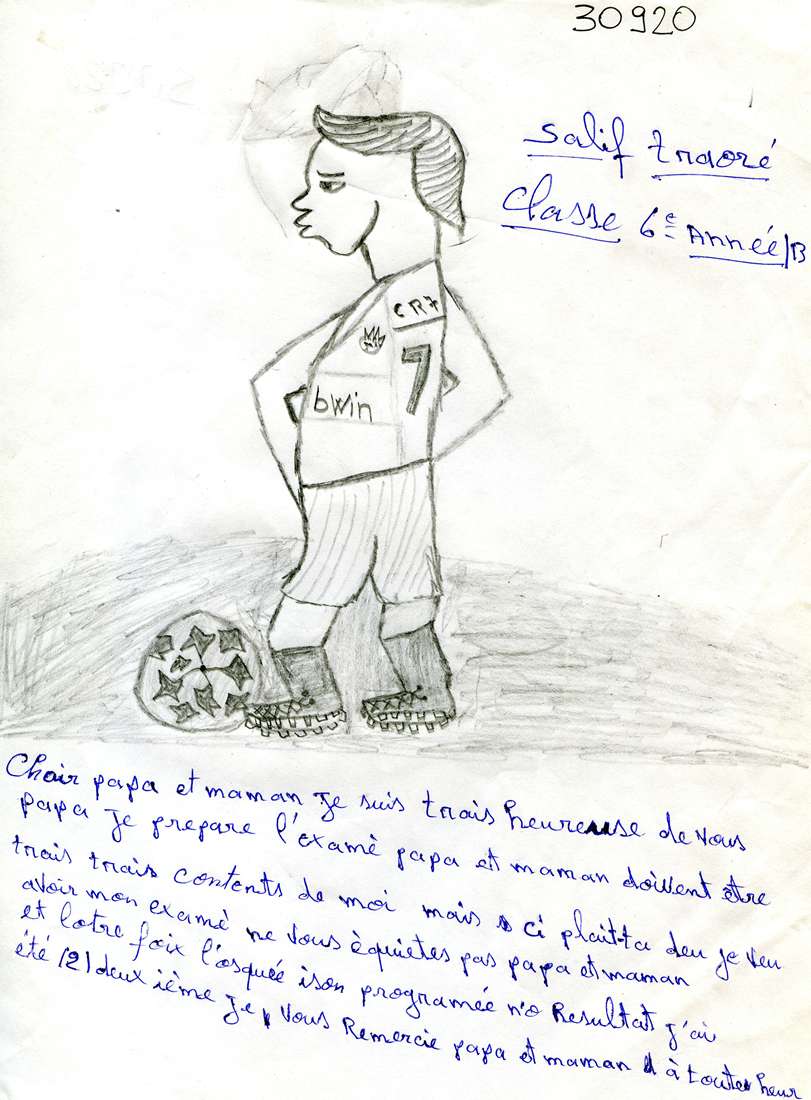 30920
Salif traoré
Classe 6e Année/B
CR7
7
bwin
Chair papa et maman Je suis trais heureuse de vous
papa Je prepare l'examè papa et maman doivent être
trais trais contents de moi mais ci plait-ta deu je veu
avoir mon examè ne vous èquietes pas papa et maman
et lotre foix l'osqueé ison programeé no Resultat j'ai
été (2) deux ième Je vous Remercie papa et maman à toute heur